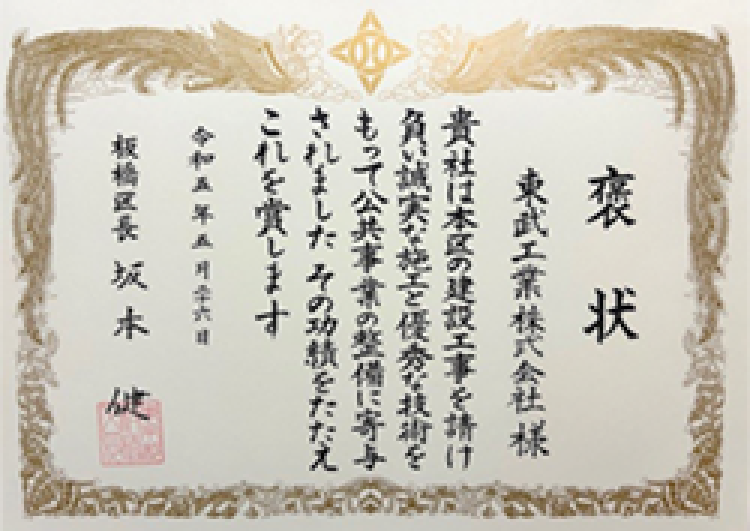 褒状
東武工業株式会社 様
貴社は本区の建設工事を請け
負い誠実な施工と優秀な技術を
もって公共事業の整備に寄与
されました その功績をたたえ
これを賞します
令和五年五月二十六日
板橋区長 坂本 健